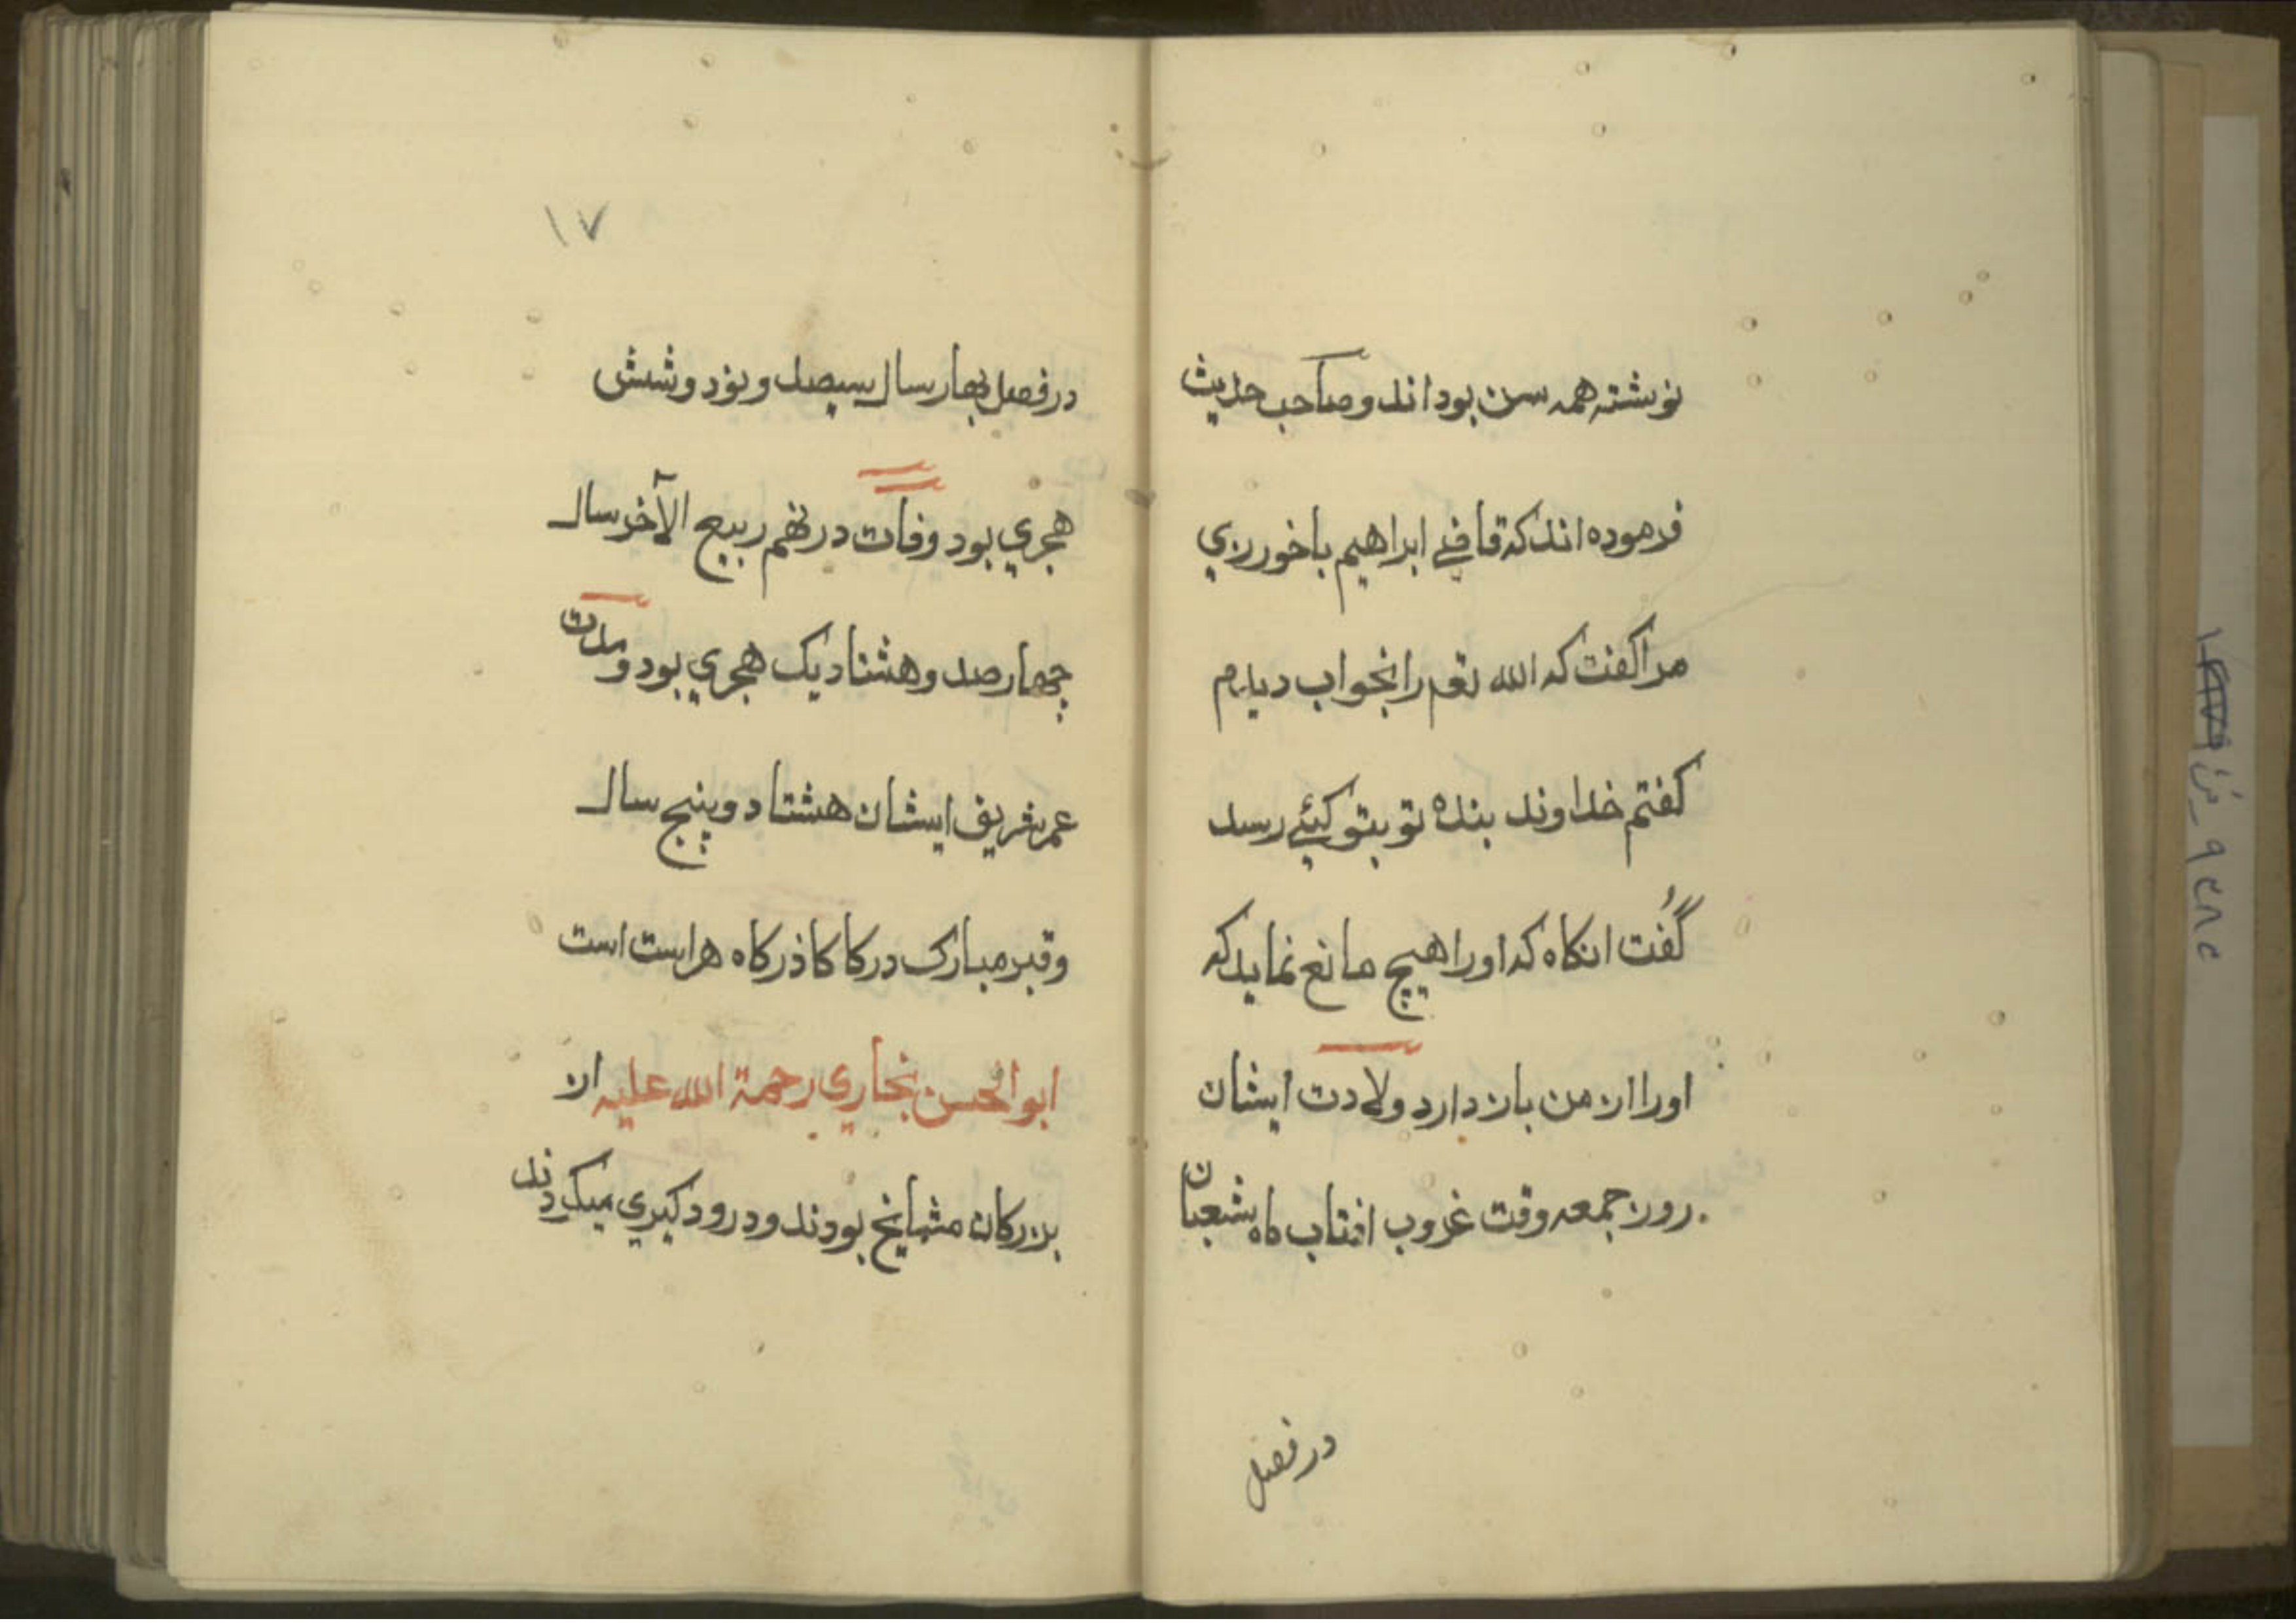 نوشته همه سن بوداند و صاحب حدیث
فرموده اند که قاضے ابراهیم باخورزي
مرا کفت که الله تعم را بخواب دیدم
کفتم خداوند بنده تو بتو کیئے رسد
گفت انکاه که اورا هیچ مانع نماید که
اورا از من باز دارد ولادت ایشان
روز جمعه وقت غروب افتاب ماه شعبان
در فصل
۱۷
در فصل بهار سال سیصد و نود و شش
هجري بود وفات در نهم ربیع الآخر سال
چهار صد و هشتاد یک هجري بود و مدت
عمر شریف ایشان هشتاد و پنج سال
و قبر مبارک در کا کاذر کاه هراست است
ابو الحسن نجاري رحمة الله علیه از
بزرکان مشایخ بودند و درود کیري میکردند